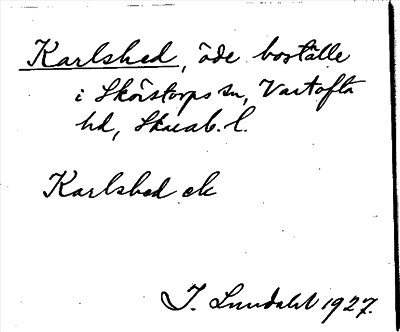 Karlshed, öde boställe
i Skörstorps sn, Vartofta
hd, Skarab. l.
Karlshed ek
I. Lundahl 1927.